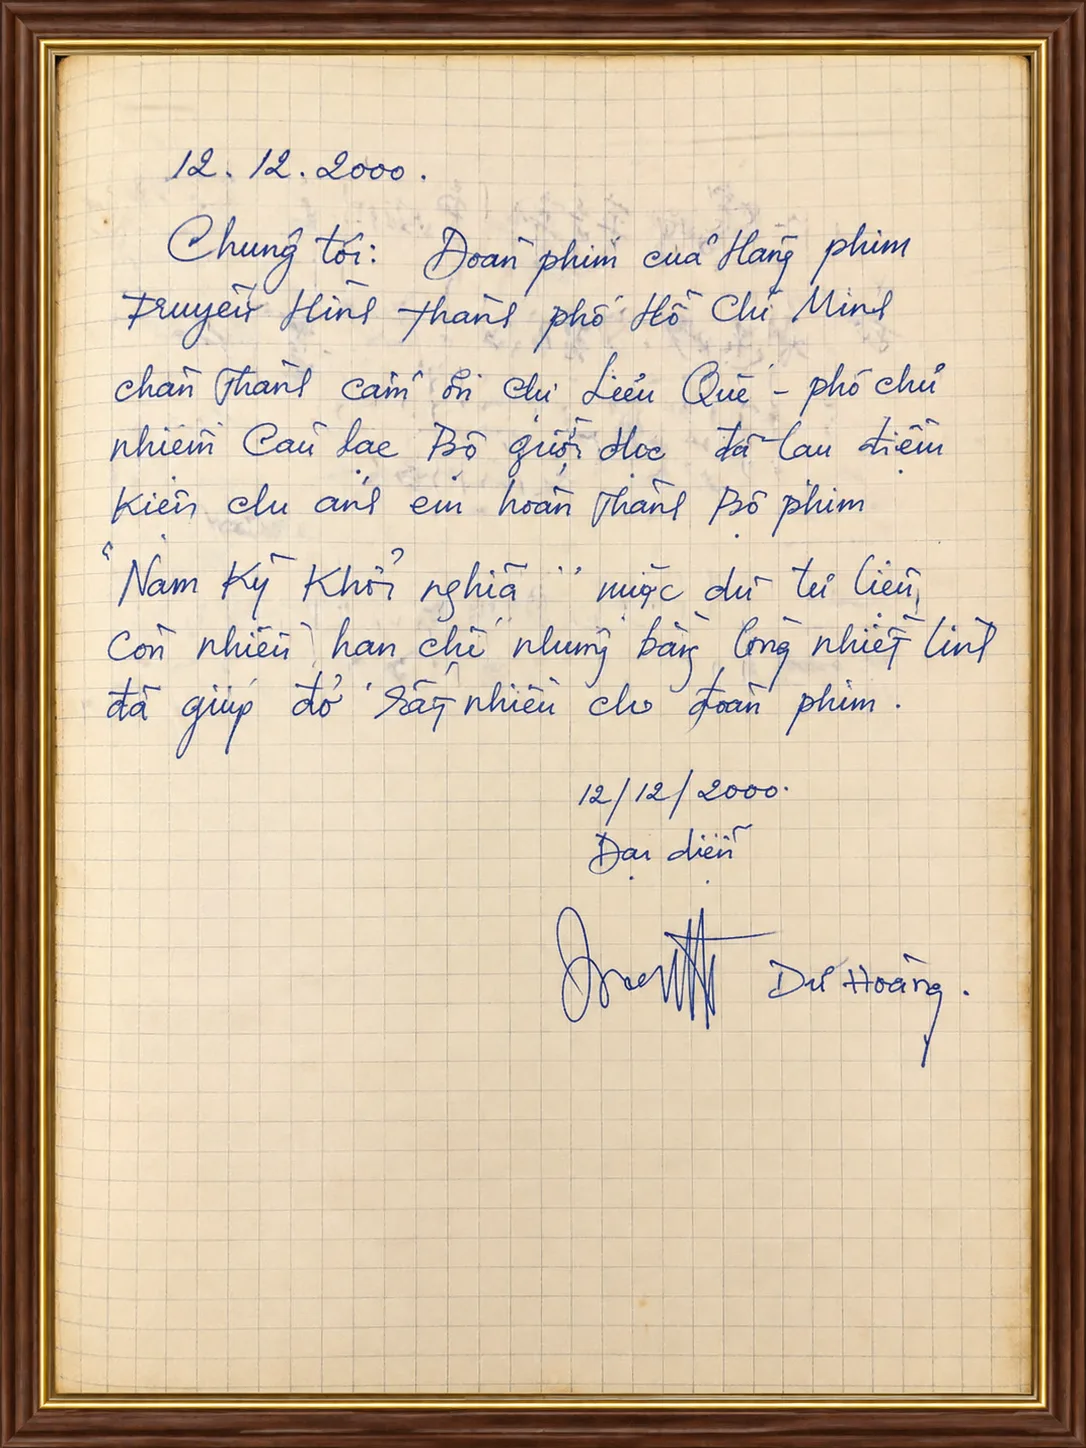 12.12.2000.
Chúng tôi: Đoàn phim của Hãng phim
Truyền Hình Thành phố Hồ Chí Minh
chân Thành cảm ơn chị Liễu Quế - phó chủ
nhiệm Câu Lạc Bộ quốc Học đã tạo điều
kiện cho anh em hoàn Thành Bộ phim
"Nam Kỳ Khởi nghĩa" mặc dù tư liệu
còn nhiều hạn chế nhưng bằng lòng nhiệt tình
đã giúp đỡ rất nhiều cho đoàn phim.
12/12/2000.
Đại diện
Dư Hoàng.